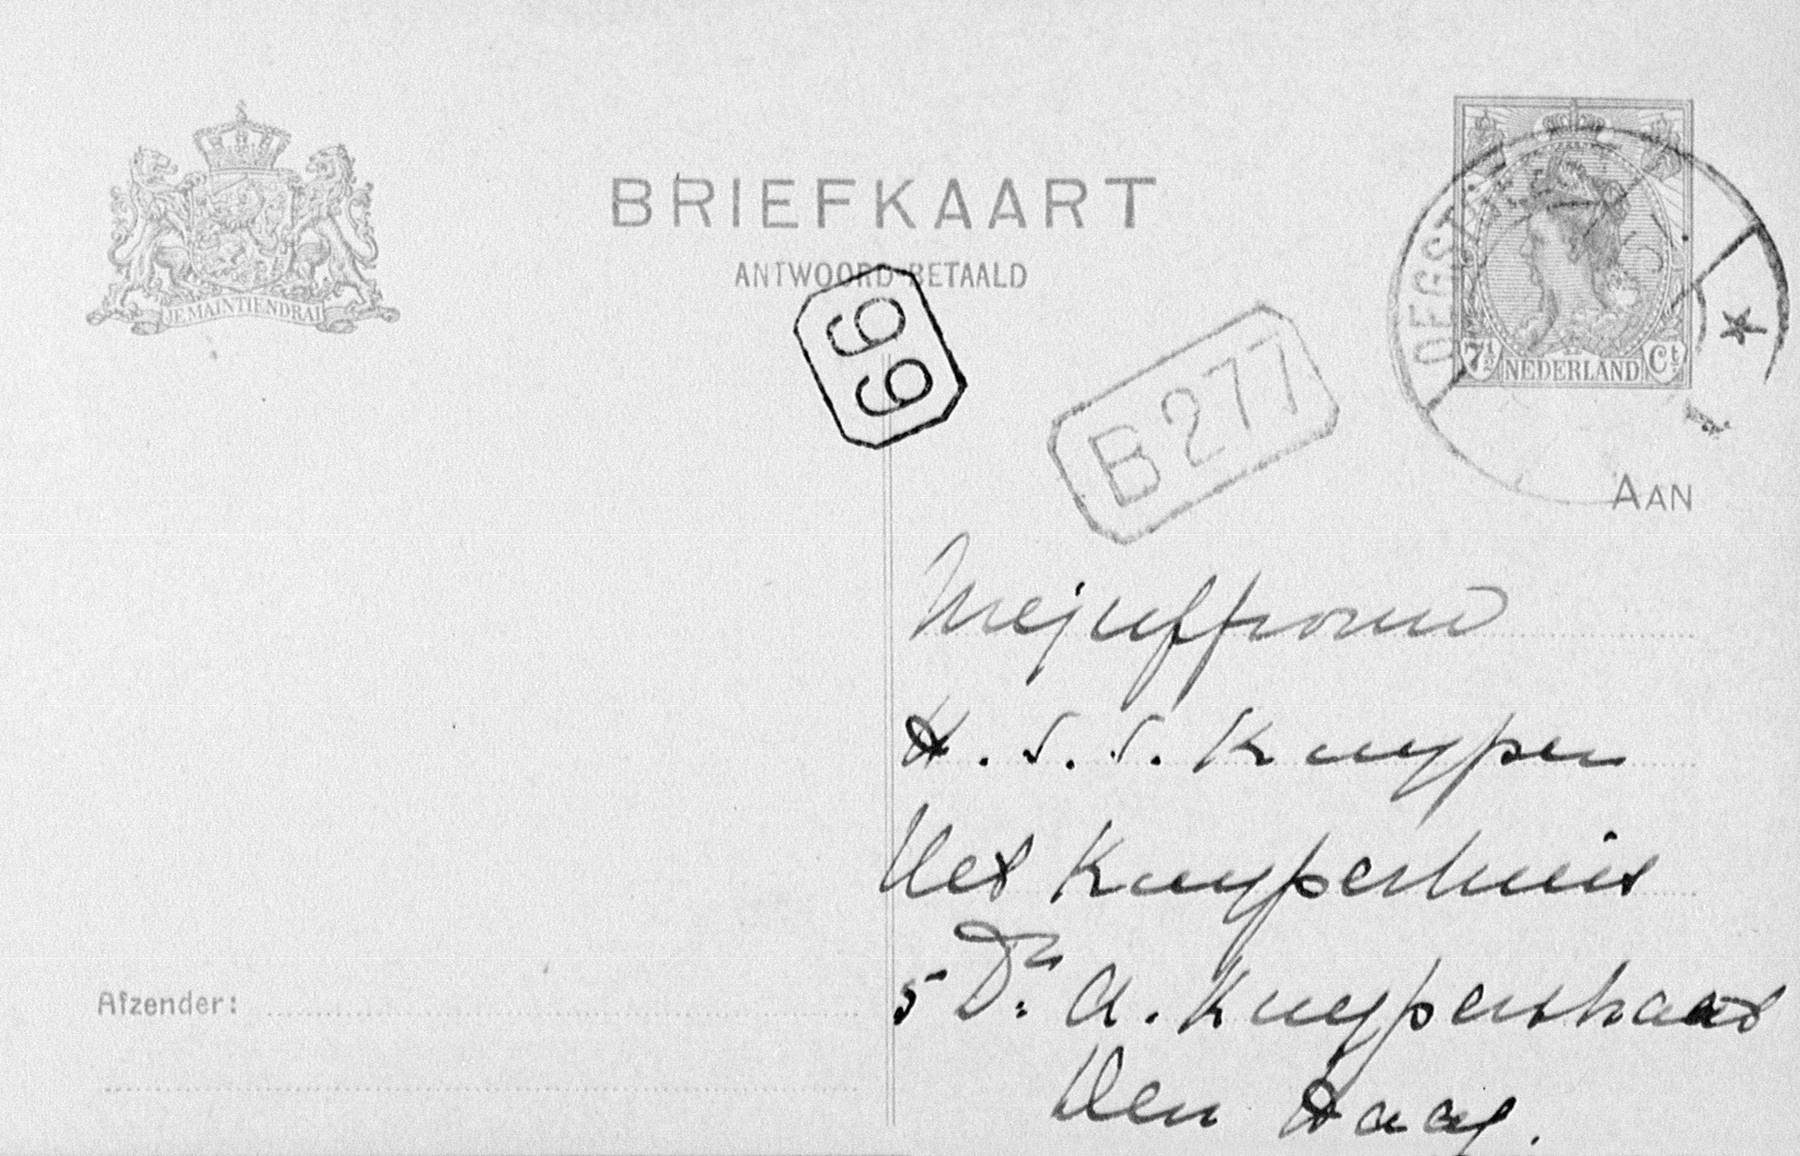 JE MAINTIENDRAI
BRIEFKAART
ANTWOORD BETAALD
99
B277
OEGST
7½ NEDERLAND Ct
AAN
Mejuffrouw
H. S. S. Kuyper
Het Kuyperhuis
5 Dr. A. Kuyperstraat
Den Haag.
Afzender: